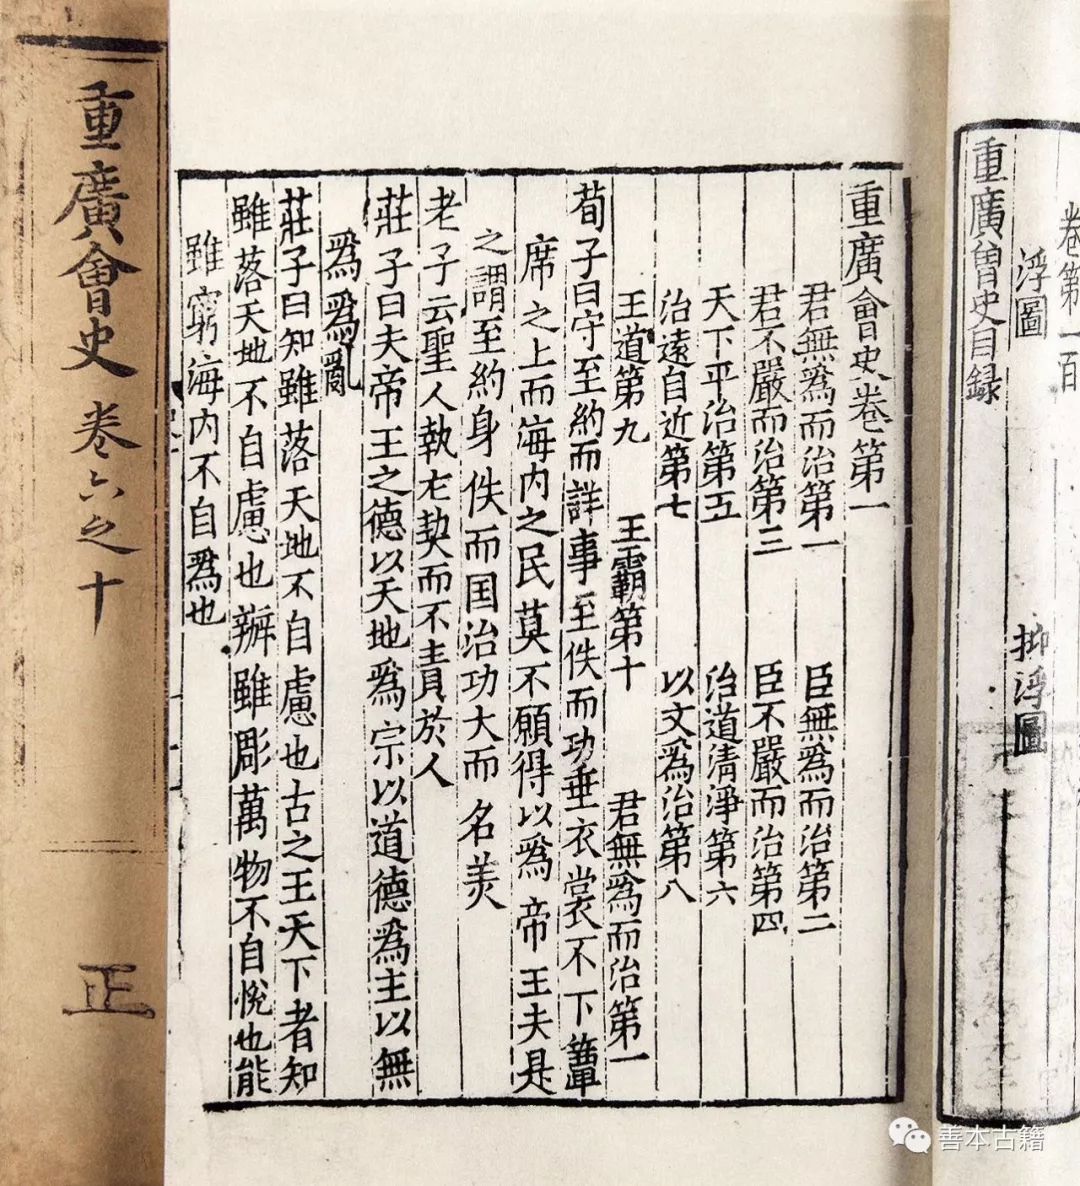 卷第一百
浮圖 抑浮圖
重廣會史目録
重廣會史卷第一
君無爲而治第一 臣無爲而治第二
君不嚴而治第三 臣不嚴而治第四
天下平治第五 治道清淨第六
治遠自近第七 以文爲治第八
王道第九 王霸第十 君無爲而治第一
荀子曰守至約而詳事至佚而功垂衣裳不下簟
席之上而海内之民莫不願得以爲帝王夫是
之謂至約身佚而国治功大而名美
老子云聖人執左契而不責於人
莊子曰夫帝王之德以天地爲宗以道德爲主以無
爲爲亂
莊子曰知雖落天地不自慮也古之王天下者知
雖落天地不自慮也辦雖彫萬物不自悅也能
雖窮海内不自爲也
重廣會史 卷六之十
正
善本古籍